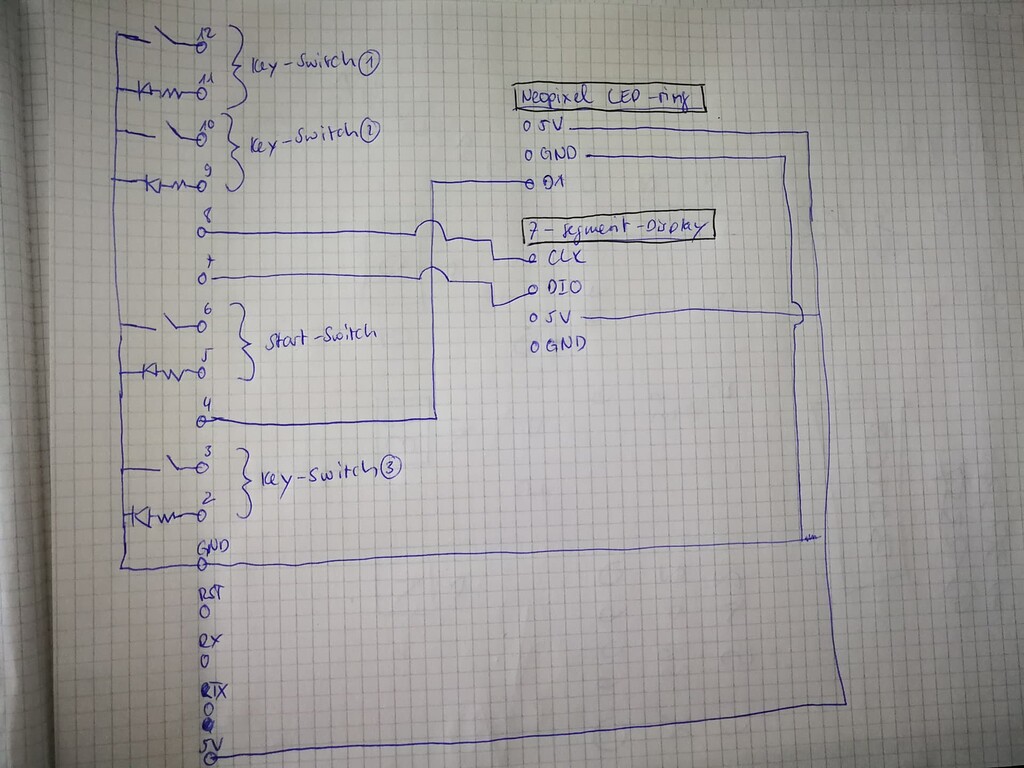 12
Key-Switch ①
11
10
Key-Switch ②
9
8
7
6
Start-Switch
5
4
3
Key-Switch ③
2
GND
RST
RX
TX
5V
Neopixel LED-ring
5V
GND
DI
7-Segment-Display
CLK
DIO
5V
GND